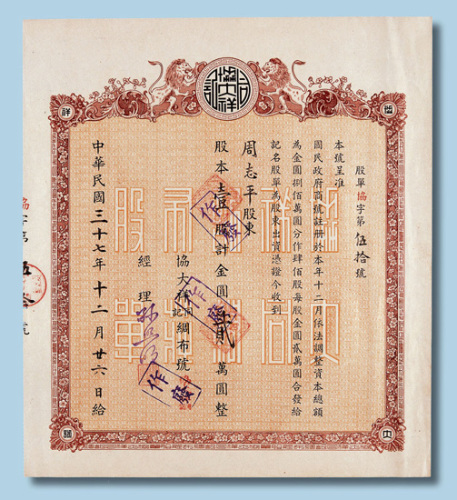 股單協字第伍拾號
本號呈准
國民政府商號註冊於本年十二月依法調整資本總額
為金圓捌佰萬圓分作肆佰股每股金圓貳萬圓合發給
記名股單為股東出資憑證今收到
周志平股東
股本壹股計金圓貳萬圓整
協大祥同記綢布號
經理
中華民國三十七年十二月廿六日給
作廢
作廢
作廢
協字第
號
祥